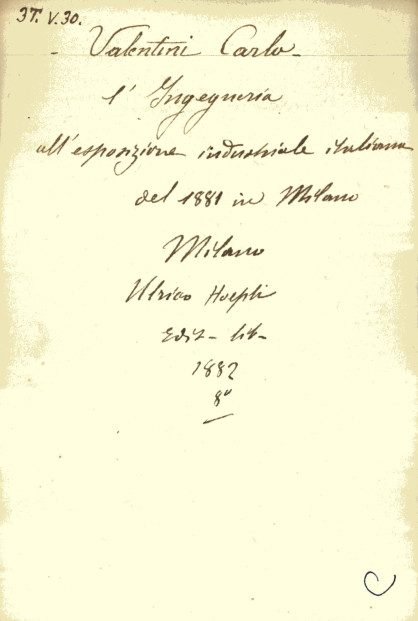 37. V. 30.
- Valentini Carlo -
l' Ingegneria
all'esposizione industriale italiana
del 1881 in Milano
Milano
Ulrico Hoepli
Edit - lib -
1882
8º
C